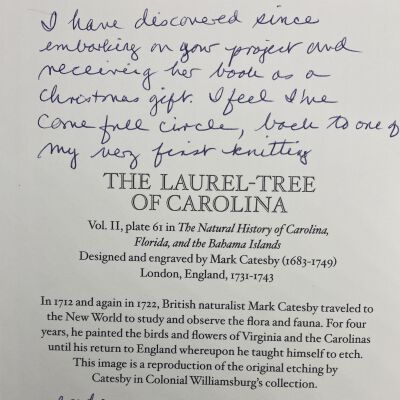 I have discovered since
embarking on your project and
receiving her book as a
Christmas gift. I feel I've
come full circle, back to one of
my very first knitting
THE LAUREL-TREE
OF CAROLINA
Vol. II, plate 61 in The Natural History of Carolina,
Florida, and the Bahama Islands
Designed and engraved by Mark Catesby (1683-1749)
London, England, 1731-1743
In 1712 and again in 1722, British naturalist Mark Catesby traveled to
the New World to study and observe the flora and fauna. For four
years, he painted the birds and flowers of Virginia and the Carolinas
until his return to England whereupon he taught himself to etch.
This image is a reproduction of the original etching by
Catesby in Colonial Williamsburg's collection.